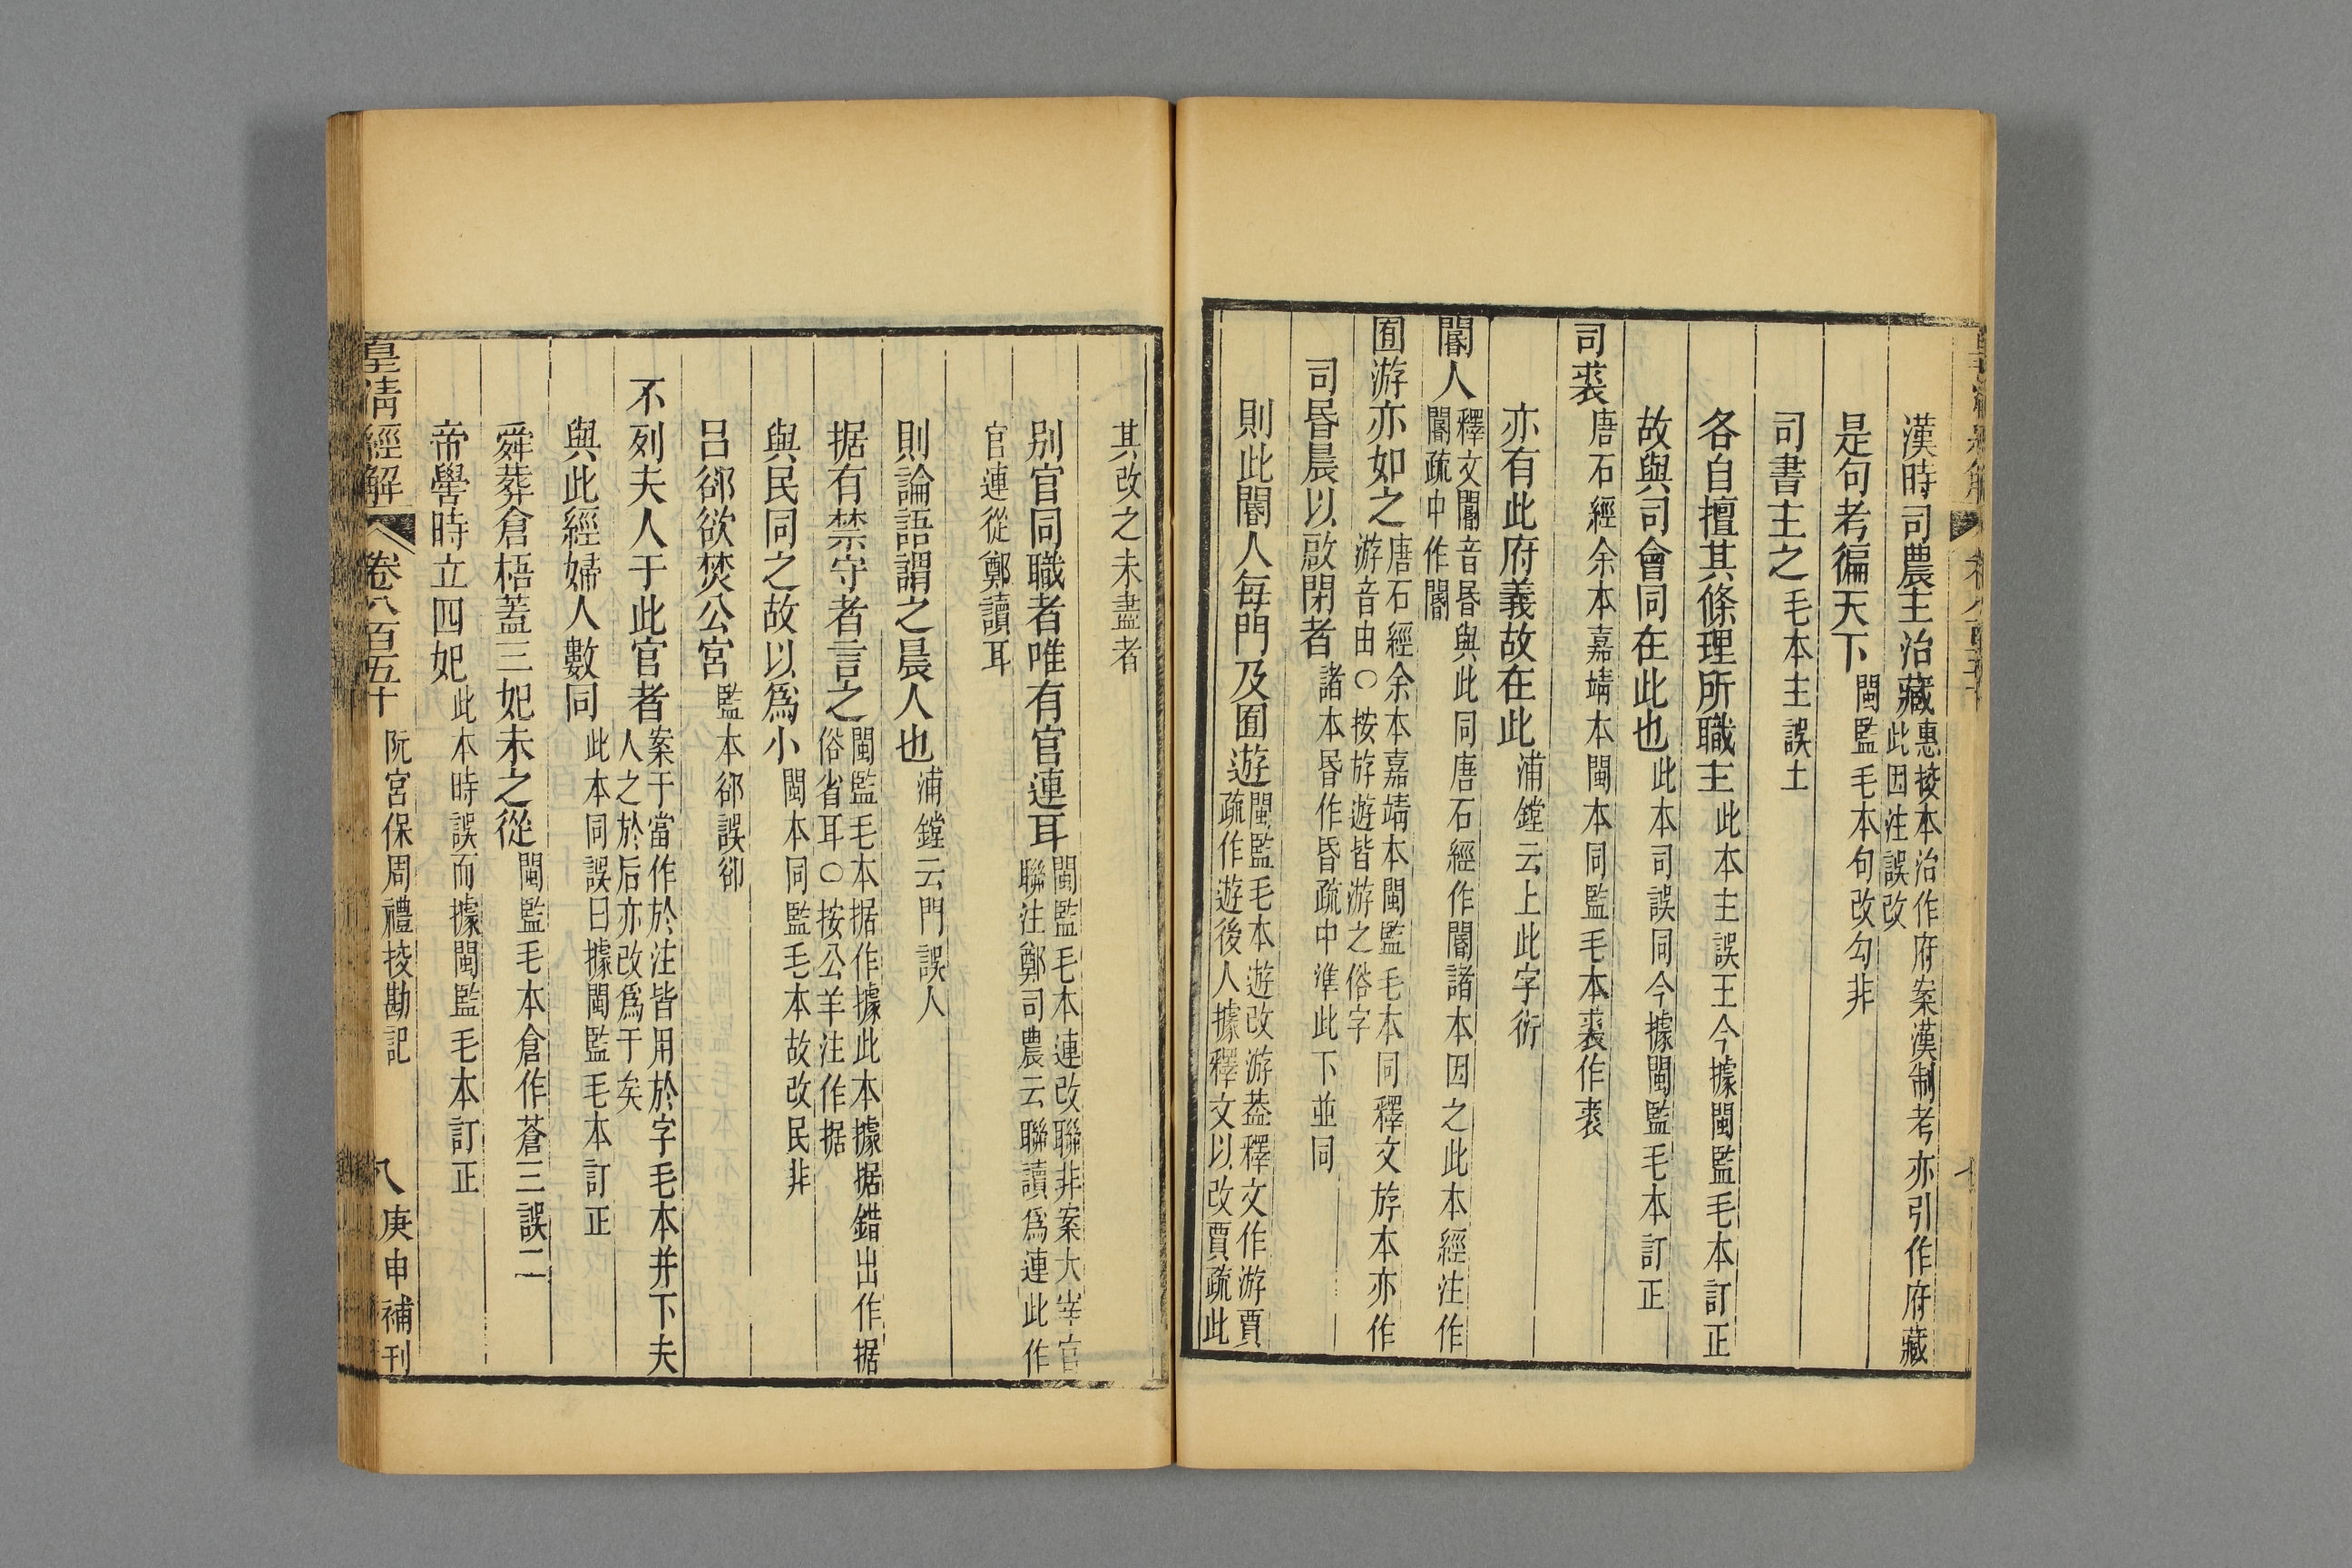 漢時司農主治藏惠挍本治作府案漢制考亦引作府藏此因注誤改
是句考徧天下閩監毛本句改勾非
司書主之毛本主誤土
各自擅其條理所職主此本主誤王今據閩監毛本訂正
故與司會同在此也此本司誤同今據閩監毛本訂正
司裘唐石經余本嘉靖本閩本同監毛本裘作裵
亦有此府義故在此浦鏜云上此字衍
閽人釋文閽音昬與此同唐石經作閽諸本因之此本經注作閽疏中作閽
囿游亦如之唐石經余本嘉靖本閩監毛本同釋文斿本亦作游音由○按斿遊皆游之俗字
司昬晨以啟閉者諸本昬作昏疏中準此下並同
則此閽人每門及囿遊閩監毛本遊改游葢釋文作游賈疏作遊後人據釋文以改賈疏此
其改之未盡者
別官同職者唯有官連耳閩監毛本連改聯非案大宰官聯注鄭司農云聯讀爲連此作
官連從鄭讀耳
則論語謂之晨人也浦鏜云門誤人
据有禁守者言之閩監毛本据作據此本據据錯出作据俗省耳○按公羊注作据
與民同之故以爲小閩本同監毛本故改民非
呂郤欲焚公宮監本郤誤卻
不列夫人于此官者案于當作於注皆用於字毛本并下夫人之於后亦改爲于矣
與此經婦人數同此本同誤曰據閩監毛本訂正
舜葬倉梧蓋三妃未之從閩監毛本倉作蒼三誤二
帝嚳時立四妃此本時誤而據閩監毛本訂正
皇清經解 卷八百五十 阮宮保周禮挍勘記 八 庚申補刊